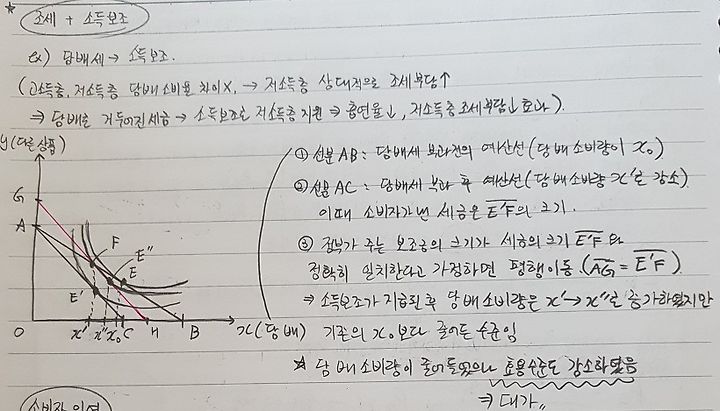 * 조세 + 소득보조
ex) 담배세 → 소득보조.
(고소득층, 저소득층 담배소비율 차이X, → 저소득층 상대적으로 조세부담↑
⇒ 담배로 거두어진세금 → 소득보조로 저소득층 지원 ⇒ 흡연율↓, 저소득층조세부담↓효과).
y(다른상품)
G
A
F
E''
E
E'
O x' x'' x₀ C H B x(담배)
① 선분 AB : 담배세 부과전의 예산선 (담배소비량이 x₀)
② 선분 AC : 담배세 부과 후 예산선 (담배소비량 x'로 감소)
이때 소비자가 낸 세금은 E'F의 크기.
③ 정부가 주는 보조금의 크기가 세금의 크기 E'F 와
정확히 일치한다고 가정하면 평행이동 (AG = E'F)
⇒ 소득보조가 지급된 후 담배소비량은 x'→x''로 증가하였지만
기존의 x₀보다 줄어든 수준임
* 담배소비량이 줄어들었으나 효용수준도 감소하였음
⇒ 대가.,
소비자 잉여